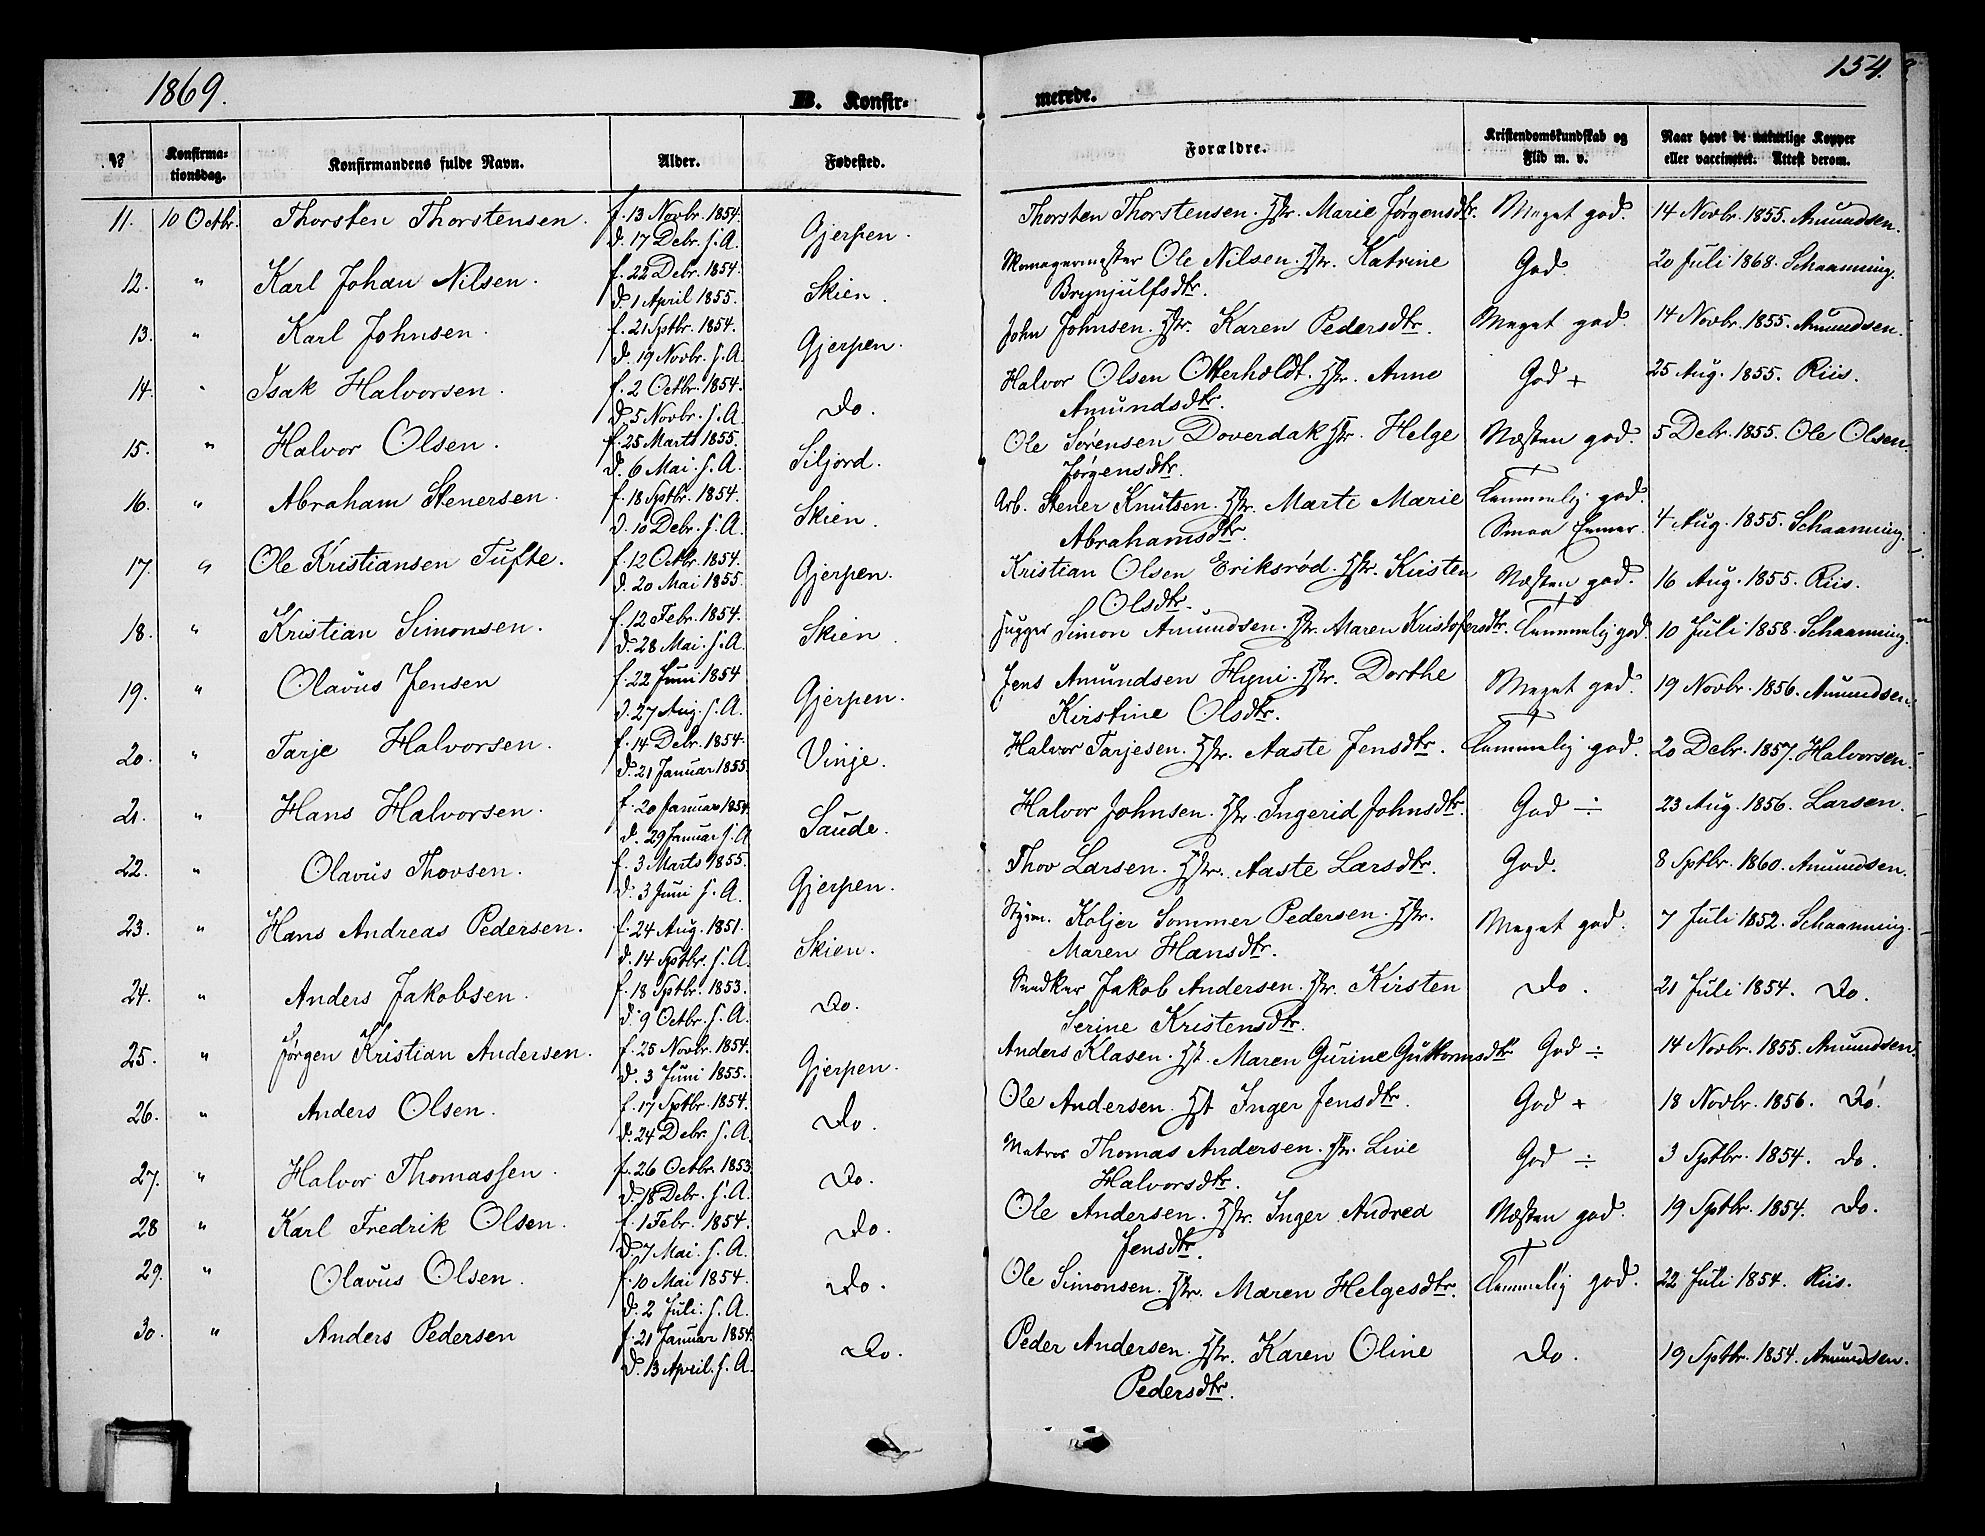 1869.
154.
B. Konfir-
merede.
№
Konfirma-
tionsdag.
Konfirmandens fulde Navn.
Alder.
Fødested.
Forældre.
Kristendomskundskab og
Flid m. v.
Naar havt de naturlige Kopper
eller vaccineret. Attest derom.
11. 10 Octbr. Thorsten Thorstensen. f. 13 Novbr. 1854. Gjerpen. Thorsten Thorstensen. Hstr. Marie Jørgensdtr. Meget god. 14 Novbr. 1855. Amundsen.
d. 17 Debr. s. A.
12. " Karl Johan Nilsen. f. 22 Debr. 1854. Skien. Ole Nilsen. Hstr. Katrine God. 20 Juli 1868. Schaanning.
d. 1 April 1855. Brynjulfsdtr.
13. " Karl Johnsen. f. 21 Sptbr. 1854. Gjerpen. John Johnsen. Hstr. Karen Pedersdtr. Meget god. 14 Novbr. 1855. Amundsen.
d. 19 Novbr. s. A.
14. " Isak Halvorsen. f. 2 Octbr. 1854. Do. Halvor Olsen Otterholdt. Hstr. Anne God + 25 Aug. 1855. Riis.
d. 5 Novbr. s. A. Amundsdtr.
15. " Halvor Olsen. f. 25 Marts 1855. Siljord. Ole Sørensen Doverdak Hstr. Helge Næsten god. 5 Debr. 1855. Ole Olsen.
d. 6 Mai. s. A. Jørgensdtr.
16. " Abraham Stenersen. f. 18 Sptbr. 1854. Skien. Arb. Stener Knutsen. Hstr. Marte Marie Temmelig god. 4 Aug. 1855. Schaanning.
d. 10 Debr. s. A. Abrahamsdtr. Smaa Evner.
17. " Ole Kristiansen Tufte. f. 12 Octbr. 1854. Gjerpen. Kristian Olsen Eriksrød. Hstr. Kirsten Næsten god. 16 Aug. 1855. Riis.
d. 20 Mai 1855. Olsdtr.
18. " Kristian Simonsen. f. 12 Febr. 1854. Skien. Simon Amundsen. Hstr. Maren Kristofersdtr. Temmelig god. 10 Juli 1858. Schaanning.
d. 28 Mai. s. A.
19. " Olavus Jensen f. 22 Juni 1854 Gjerpen. Jens Amundsen Hyni. Hstr. Dorthe Meget god. 19 Novbr. 1856. Amundsen.
d. 27 Aug. s. A. Kirstine Olsdtr.
20. " Tarje Halvorsen. f. 14 Debr. 1854. Vinje. Halvor Tarjesen. Hstr. Aaste Jensdtr. Temmelig god. 20 Debr. 1857. Halvorsen.
d. 21 Januar 1855.
21. " Hans Halvorsen. f. 20 Januar 1854. Saude. Halvor Johnsen. Hstr. Ingerid Johnsdtr. God ÷ 23 Aug. 1856. Larsen.
d. 29 Januar s. A.
22. " Olavus Thovsen. f. 3 Marts 1855. Gjerpen. Thov Larsen. Hstr. Aaste Larsdtr. God. 8 Sptbr. 1860. Amundsen.
d. 3 Juni s. A.
23. " Hans Andreas Pedersen. f. 24 Aug. 1851. Skien. Styrm. Koljer Sommer Pedersen. Hstr. Meget god. 7 Juli 1852. Schaanning.
d. 14 Sptbr. s. A. Maren Hansdtr.
24. " Anders Jakobsen. f. 18 Sptbr. 1853. Do. Snedker Jakob Andersen. Hstr. Kirsten Do. 21 Juli 1854. Do.
d. 9 Octbr. s. A. Serine Kristensdtr.
25. " Jørgen Kristian Andersen. f. 25 Novbr. 1854. Gjerpen. Anders Klasen. Hst. Maren Gurine Guttormsdtr God ÷ 14 Novbr. 1855. Amundsen.
d. 3 Juni 1855.
26. " Anders Olsen. f. 17 Sptbr. 1854. Do. Ole Andersen. Hst Inger Jensdtr. God + 18 Novbr. 1856. Do.
d. 24 Debr. s. A.
27. " Halvor Thomassen. f. 26 Octbr. 1853 Do. Matros Thomas Andersen. Hstr. Live God ÷ 3 Sptbr. 1854. Do.
d. 18 Debr. s. A. Halvorsdtr.
28 " Karl Fredrik Olsen. f. 1 Febr. 1854. Do. Ole Andersen. Hstr. Inger Andrea Næsten god. 19 Sptbr. 1854. Do.
d. 7 Mai. s. A. Jensdtr.
29. " Olavus Olsen. f. 10 Mai 1854. Do. Ole Simonsen. Hstr. Maren Helgesdtr. Temmelig god. 22 Juli 1854. Riis.
d. 2 Juli. s. A.
30. " Anders Pedersen f. 21 Januar 1854. Do. Peder Andersen. Hstr. Karen Oline Do. 19 Sptbr. 1854. Amundsen.
d. 13 April. s. A. Pedersdtr.